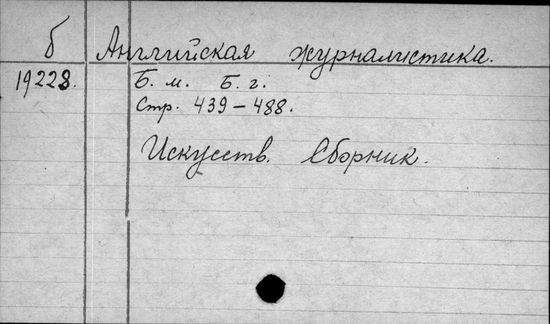 б Английская журналистика.
19228. Б. м. Б. г.
Стр. 439-488.
Искусств. Сборник.